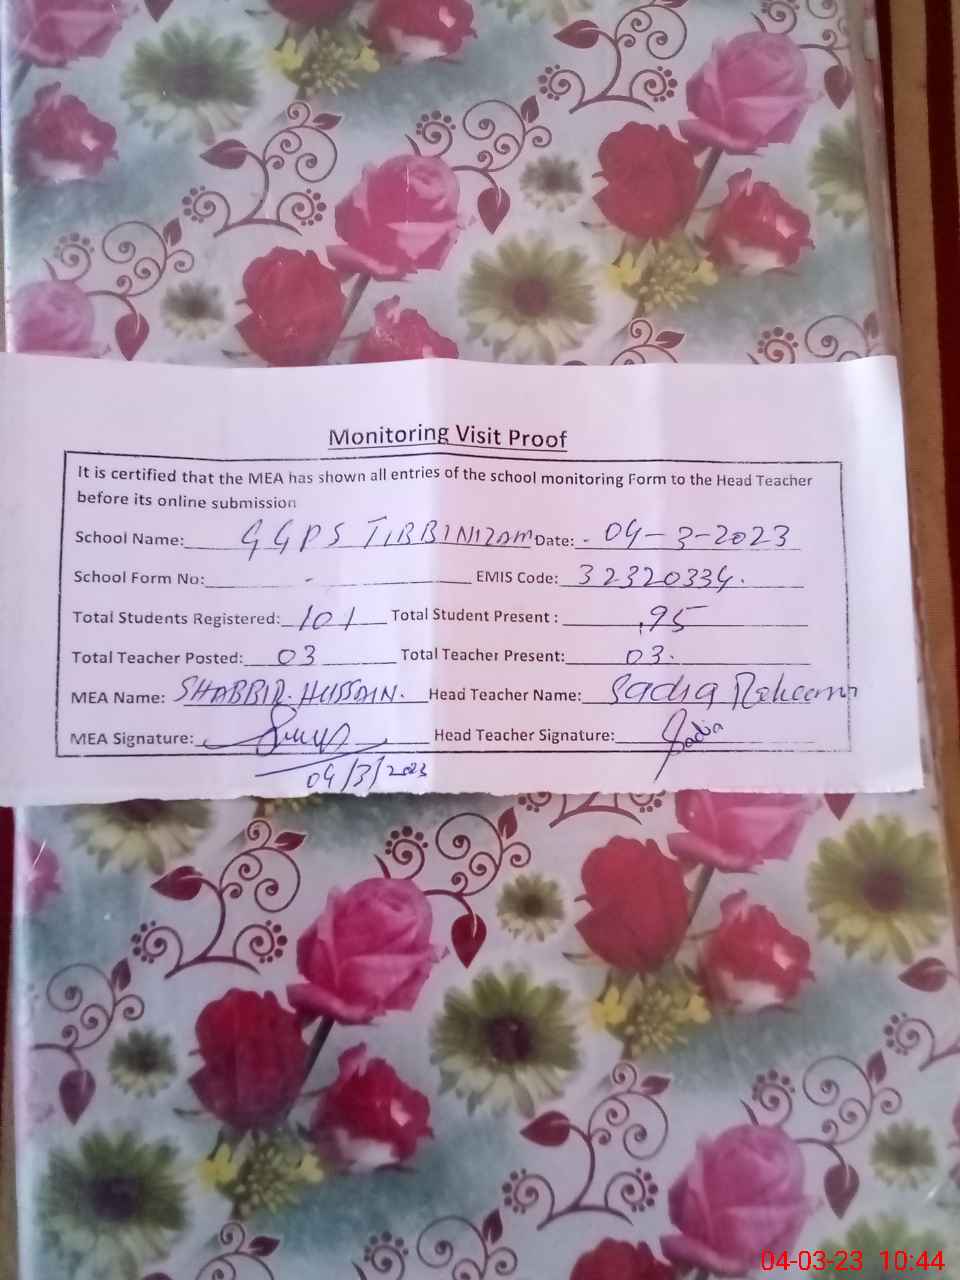 Monitoring Visit Proof
It is certified that the MEA has shown all entries of the school monitoring Form to the Head Teacher
before its online submission
School Name: GGPS TIBBI NIZAM Date: - 04-3-2023
School Form No: - EMIS Code: 32320334.
Total Students Registered: 101 Total Student Present : 95
Total Teacher Posted: 03 Total Teacher Present: 03.
MEA Name: SHABBIR. HUSSAIN. Head Teacher Name: Sadia Raheem
MEA Signature: Head Teacher Signature: Sadia
04/3/2023
04-03-23 10:44